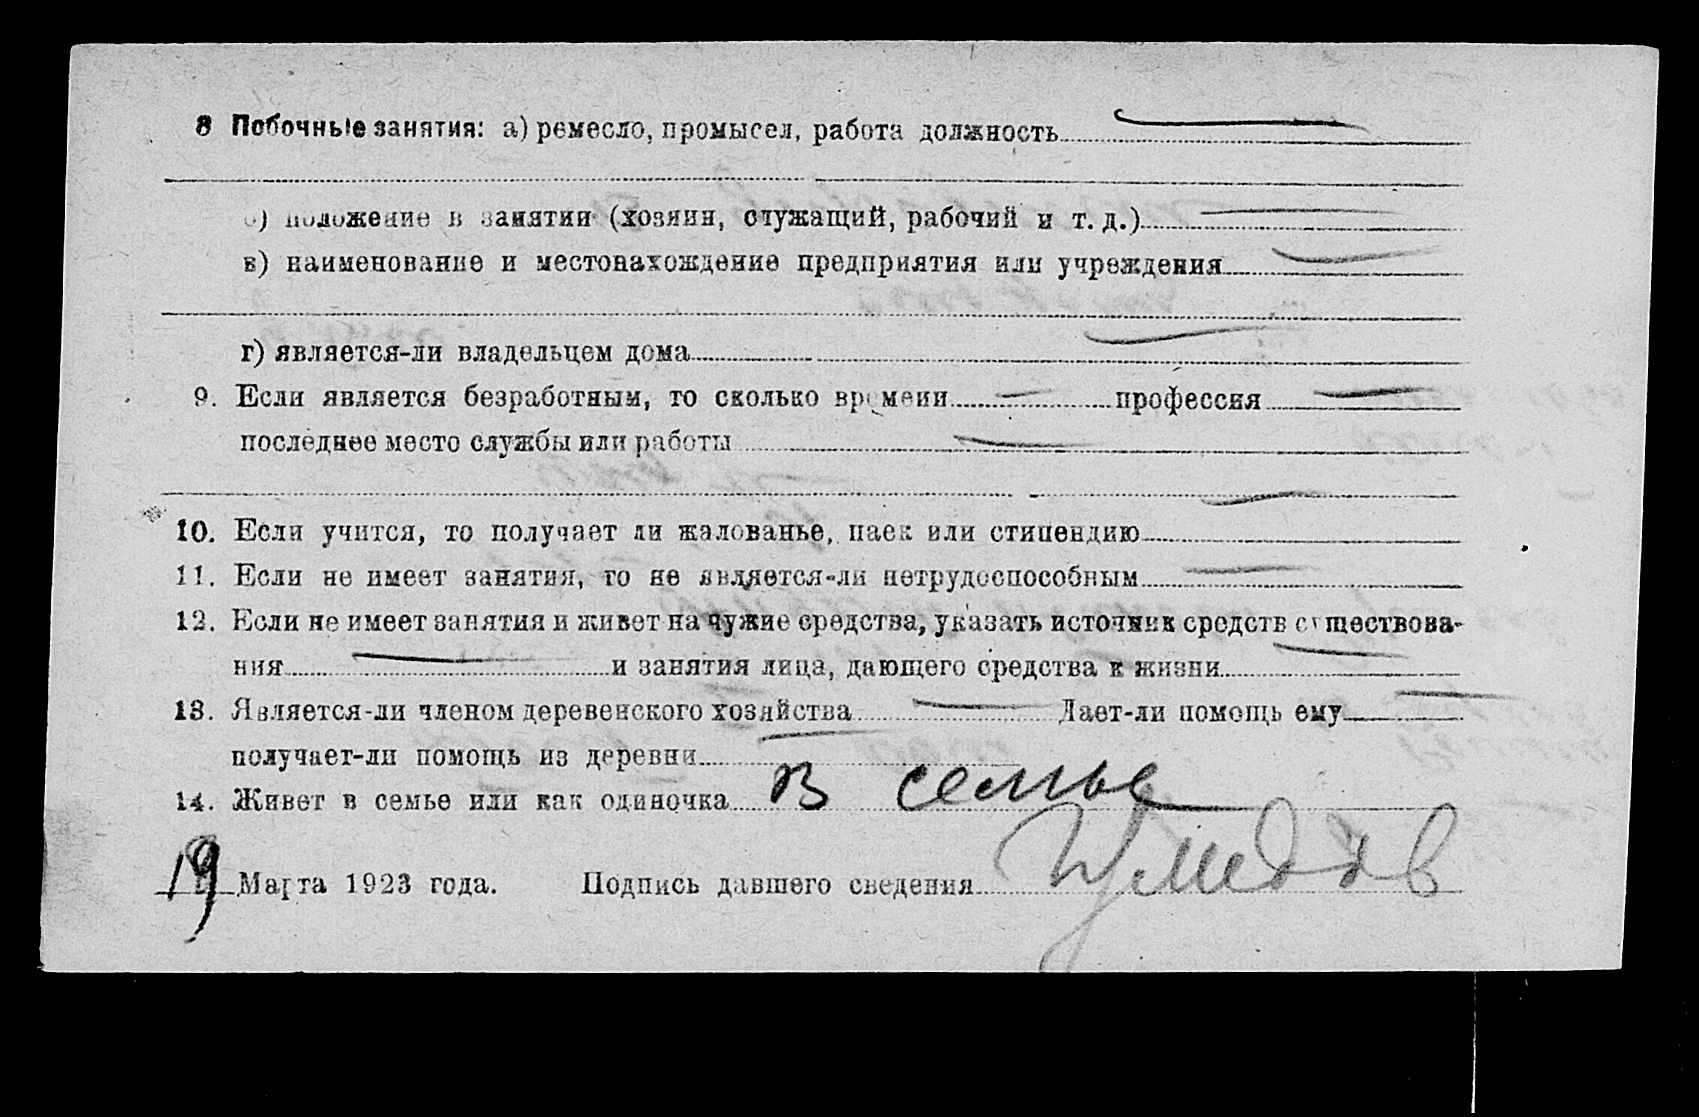 8 Побочные занятия: а) ремесло, промысел, работа должность
б) положение в занятии (хозяин, служащий, рабочий и т. д.)
в) наименование и местонахождение предприятия или учреждения
г) является-ли владельцем дома
9. Если является безработным, то сколько времени профессия
последнее место службы или работы
10. Если учится, то получает ли жалованье, паек или стипендию
11. Если не имеет занятия, то не является-ли нетрудоспособным
12. Если не имеет занятия и живет на чужие средства, указать источник средств существова-
ния и занятия лица, дающего средства к жизни
13. Является-ли членом деревенского хозяйства Дает-ли помощь ему
получает-ли помощь из деревни
14. Живет в семье или как одиночка В семье
19 Марта 1923 года. Подпись давшего сведения